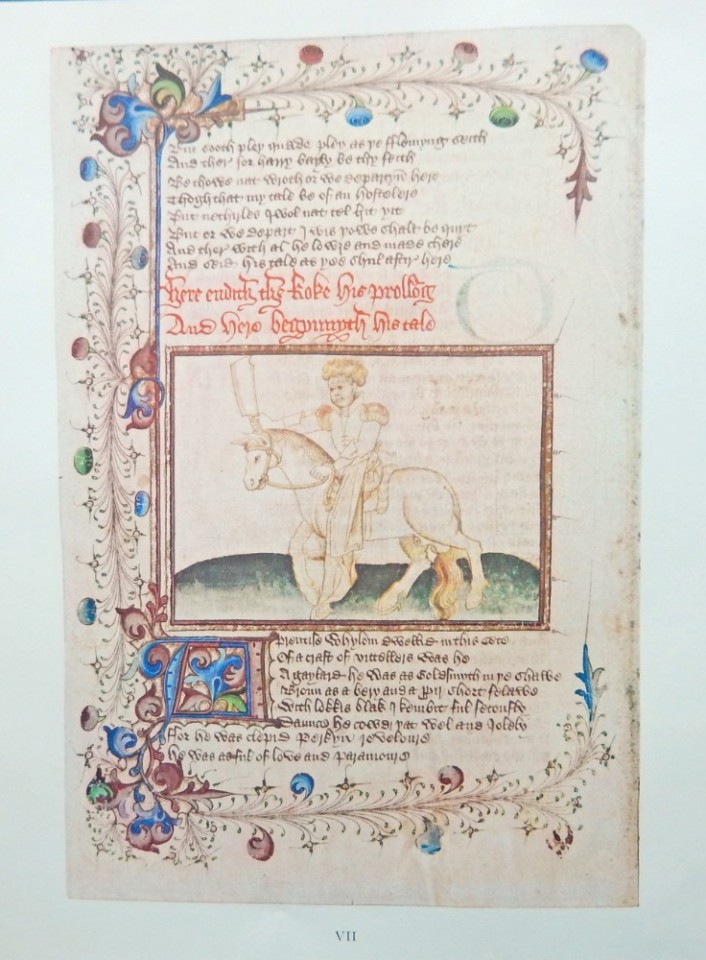 But sooth pley quade pley as ye fflemyng seith
And ther for harry bayly be thy feith
Be thowe nat wroth or we departyn here
Thogh that my tale be of an hostelere
But netheles I wol nat tel hit yit
But or we depart I wis yowe shalt be quyt
And ther with al he lowze and made chere
And seid his tale as yee shul after here
Here endith the Koke his prollog
And here begynnyth his tale
A Prentise whylom dwellid in this Cete
Of a craft of vittellers was he
A gaylard he was as Goldfynch in ye shawe
Broun as a bery and a propir short felawe
With lokkis blak kembit ful fetously
Daunce he cowd so wel and Iolely
ffor he was clepid Perkyn revelour
he was as ful of love and Paramour
VII